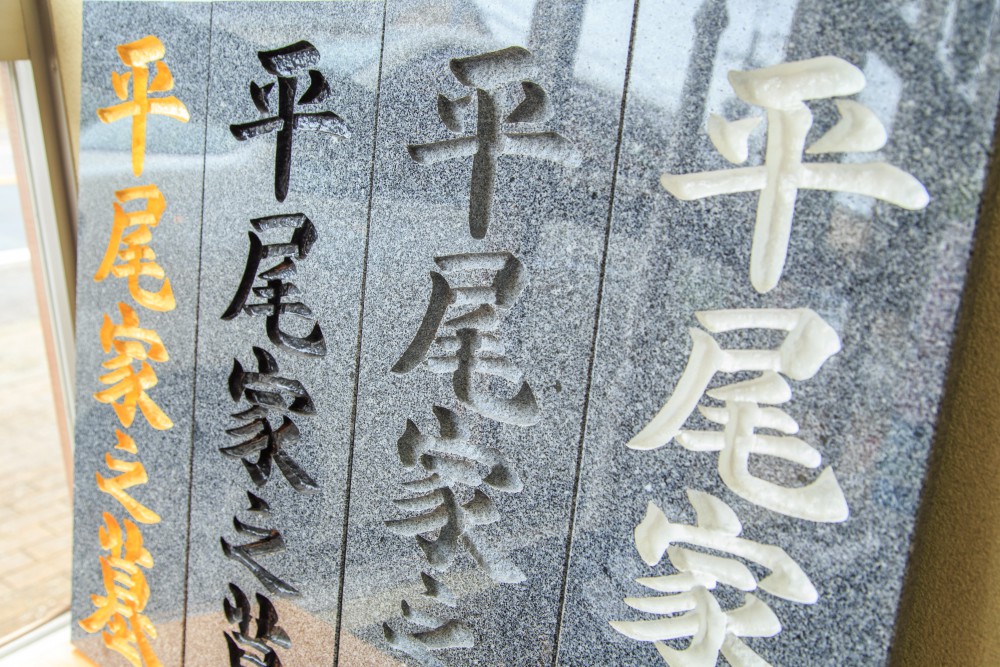 平尾家
平尾家之
平尾家之墓
平尾家之墓